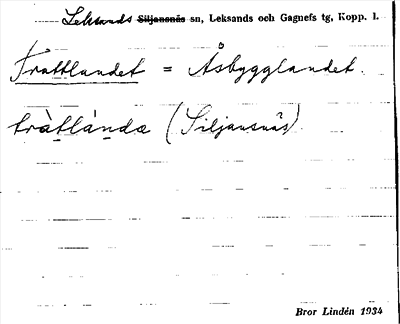 Leksands Siljansnäs sn, Leksands och Gagnefs tg, Kopp. l.
Trattlandet = Åsbygglandet.
tràtlánda (Siljansnäs)
Bror Lindén 1934